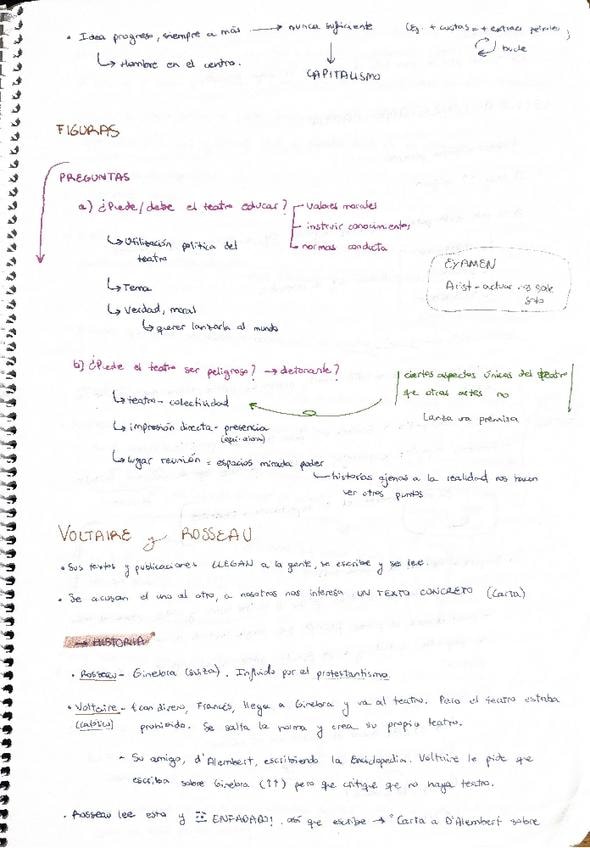 • Idea progreso, siempre a más → nunca suficiente (Ej. + cuotas = + extraer
↳ Hombre en el centro. ↓ bucle
CAPITALISMO
FIGURAS
PREGUNTAS
a) ¿Puede/debe el teatro educar? valores morales
instruir conocimientos
↳ Utilización política del teatro
normas conducta
EXAMEN
Arist - actuar → sale solo
↳ Tema
↳ Verdad, moral
↳ querer lanzarla al mundo
b) ¿Puede el teatro ser peligroso? → detonante?
ciertos aspectos únicos del teatro
que otras artes no
↳ teatro - colectividad
Lanza una premisa
↳ impresión directa - presencia
(aquí-ahora)
↳ lugar reunión = espacios mirada poder
historias ajenas a la realidad nos hacen
ver otros puntos
VOLTAIRE y ROSSEAU
• Sus textos y publicaciones LLEGAN a la gente, se escribe y se lee.
• Se acusan el uno al otro, a nosotros nos interesa UN TEXTO CONCRETO (Carta)
→ HISTORIA
• Rosseau - Ginebra (suiza). Influido por el protestantismo.
• Voltaire - (con dinero, Francés, llega a Ginebra y va al teatro. Pero el teatro estaba
(católico) prohibido. Se salta la norma y crea su propio teatro.
- Su amigo, d'Alembert, escribiendo la Enciclopedia. Voltaire le pide que
escriba sobre Ginebra (↑↑) pero que critique que no haya teatro.
• Rosseau lee esto y ENFADADO! así que escribe → "Carta a D'Alembert sobre